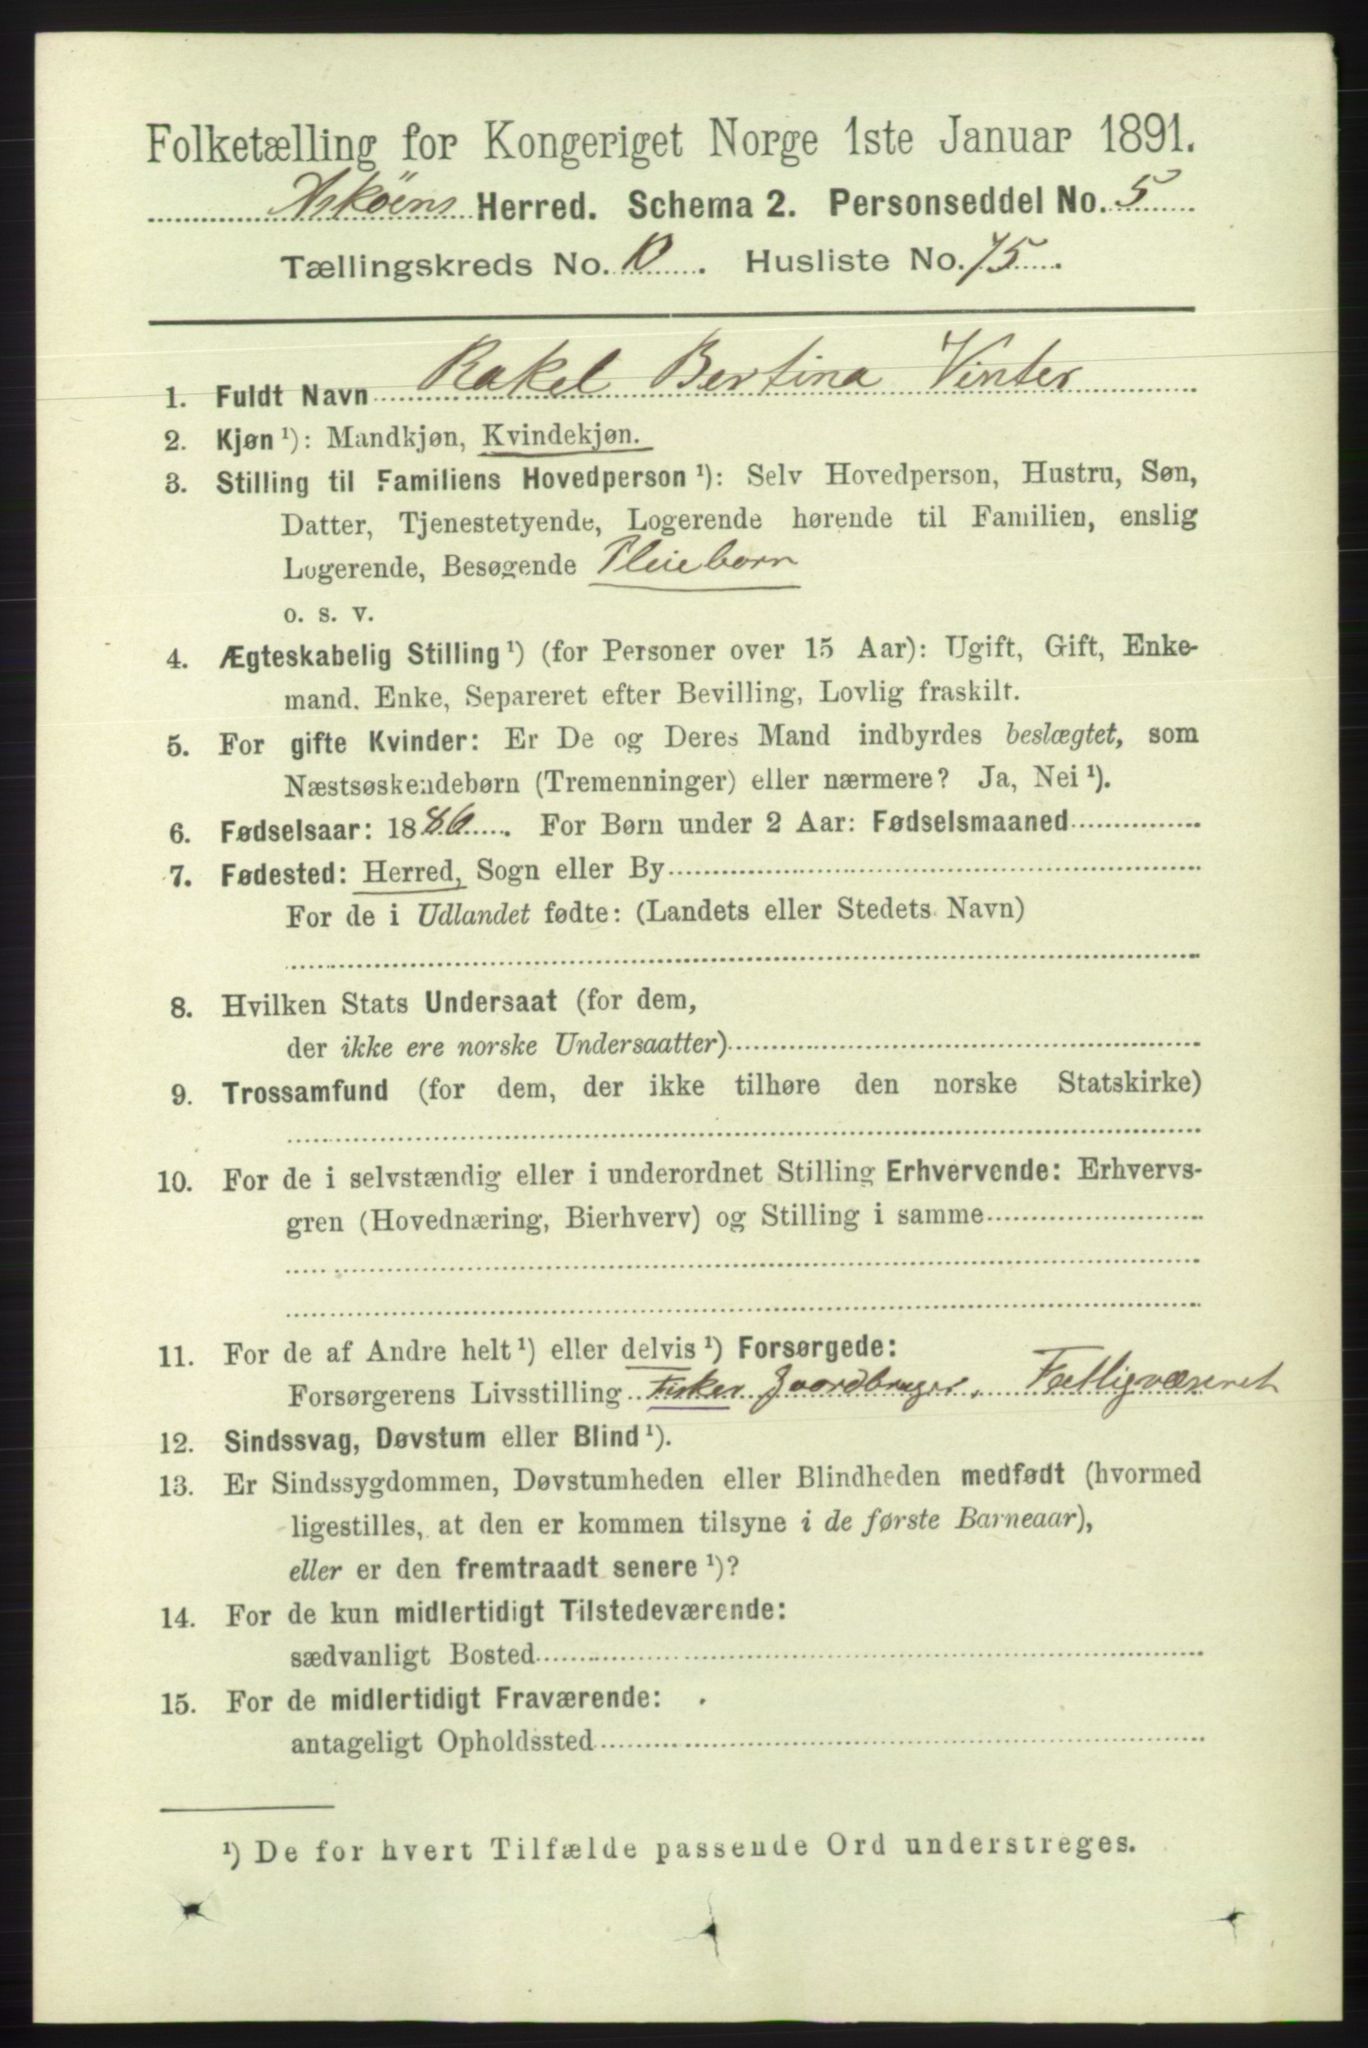 Folketælling for Kongeriget Norge 1ste Januar 1891.
Askøens Herred. Schema 2. Personseddel No. 5
Tællingskreds No. 10. Husliste No. 75.
1. Fuldt Navn Rakel Bertina Vinter
2. Kjøn ¹): Mandkjøn, Kvindekjøn.
3. Stilling til Familiens Hovedperson ¹): Selv Hovedperson, Hustru, Søn,
Datter, Tjenestetyende, Logerende hørende til Familien, enslig
Logerende, Besøgende Pleiebarn
o. s. v.
4. Ægteskabelig Stilling ¹) (for Personer over 15 Aar): Ugift, Gift, Enke-
mand. Enke, Separeret efter Bevilling, Lovlig fraskilt.
5. For gifte Kvinder: Er De og Deres Mand indbyrdes beslægtet, som
Næstsøskendebørn (Tremenninger) eller nærmere? Ja, Nei ¹).
6. Fødselsaar: 1886. For Børn under 2 Aar: Fødselsmaaned
7. Fødested: Herred, Sogn eller By
For de i Udlandet fødte: (Landets eller Stedets Navn)
8. Hvilken Stats Undersaat (for dem,
der ikke ere norske Undersaatter)
9. Trossamfund (for dem, der ikke tilhøre den norske Statskirke)
10. For de i selvstændig eller i underordnet Stilling Erhvervende: Erhvervs-
gren (Hovednæring, Bierhverv) og Stilling i samme
11. For de af Andre helt ¹) eller delvis ¹) Forsørgede:
Forsørgerens Livsstilling Fisker Jordbruger, Fattigvæsenet
12. Sindssvag, Døvstum eller Blind ¹).
13. Er Sindssygdommen, Døvstumheden eller Blindheden medfødt (hvormed
ligestilles, at den er kommen tilsyne i de første Barneaar),
eller er den fremtraadt senere ¹)?
14. For de kun midlertidigt Tilstedeværende:
sædvanligt Bosted
15. For de midlertidigt Fraværende:
antageligt Opholdssted
¹) De for hvert Tilfælde passende Ord understreges.